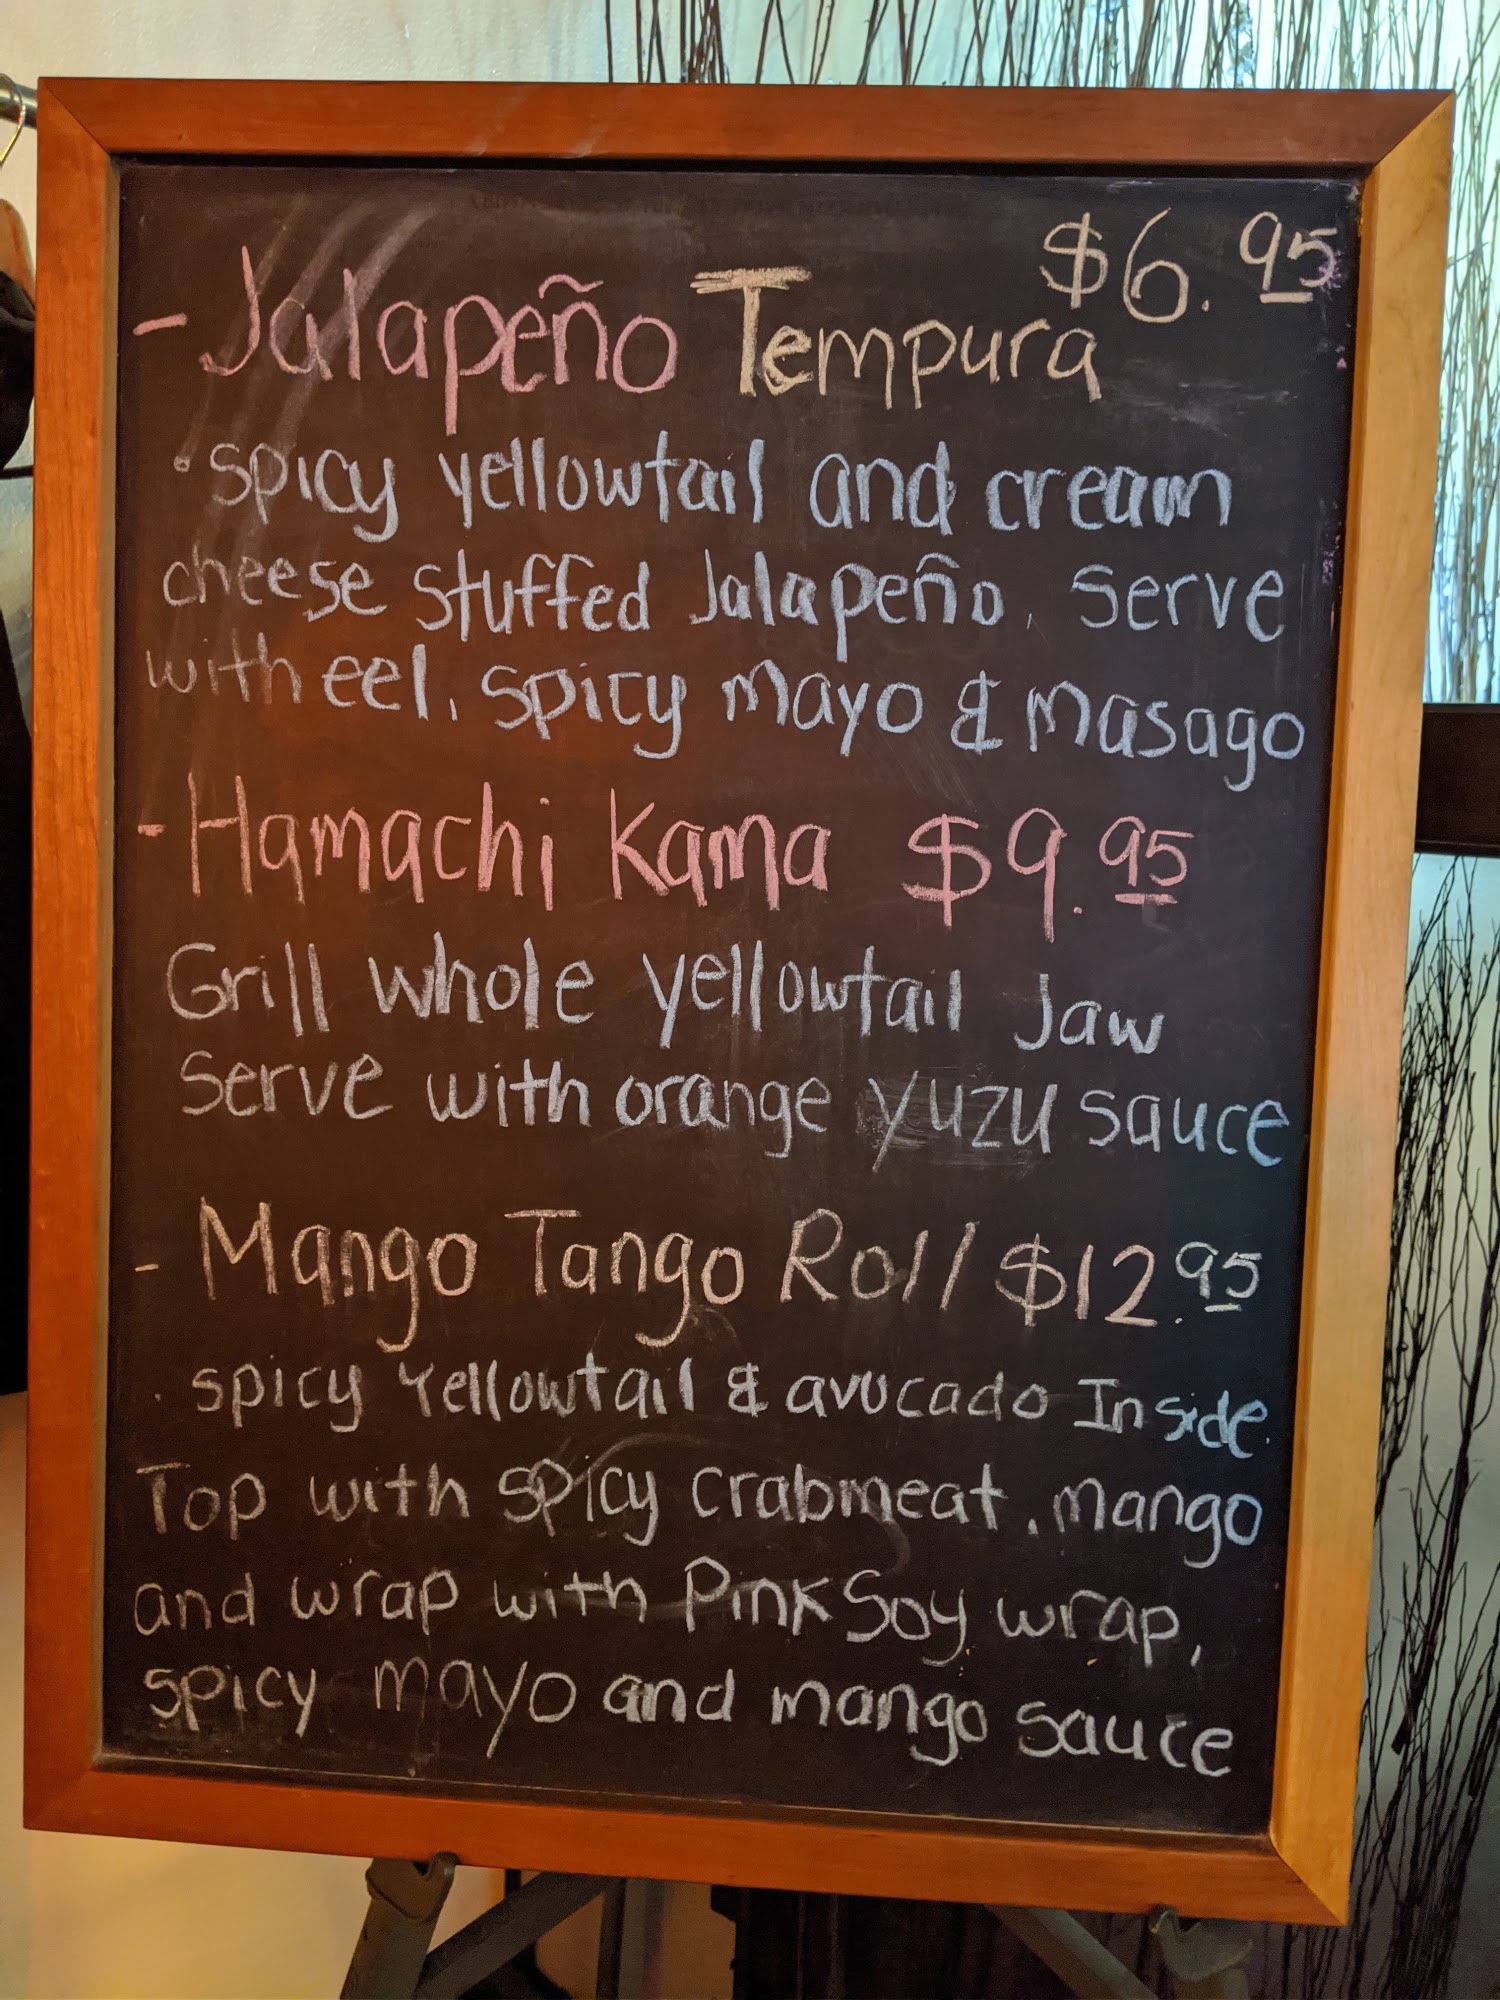 $6.95
- Jalapeño Tempura
• spicy yellowtail and cream
cheese stuffed Jalapeño, Serve
with eel, spicy mayo & masago
- Hamachi Kama $9.95
Grill whole yellowtail Jaw
Serve with orange yuzu sauce
- Mango Tango Roll $12.95
• spicy Yellowtail & avocado Inside.
Top with spicy crabmeat, mango
and wrap with Pink Soy wrap,
spicy mayo and mango sauce